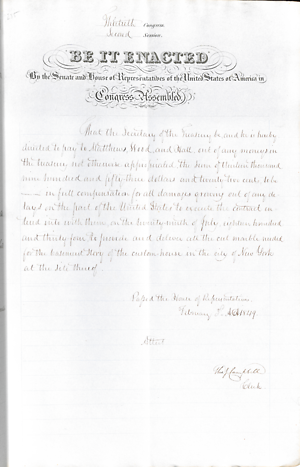 Thirtieth Congress
Second Session
BE IT ENACTED
By the Senate and House of Representatives of the United States of America in
Congress Assembled
That the Secretary of the Treasury be, and he is hereby
directed to pay to Matthews, Wood and Hall out of any money in
the treasury not otherwise appropriated the sum of nineteen thousand
nine hundred and fifty-three dollars and twenty
in full compensation for all damages growing out of any de
lays on the part of the United States to execute the contract en
tered into with them, on the twenty-ninth of July, eighteen hundred
and thirty four to provide and deliver all the cut marble needed
for the basement story of the custom-house in the city of New York
at the site thereof.
Passed the House of Representatives
February 1849
Attest
Clerk